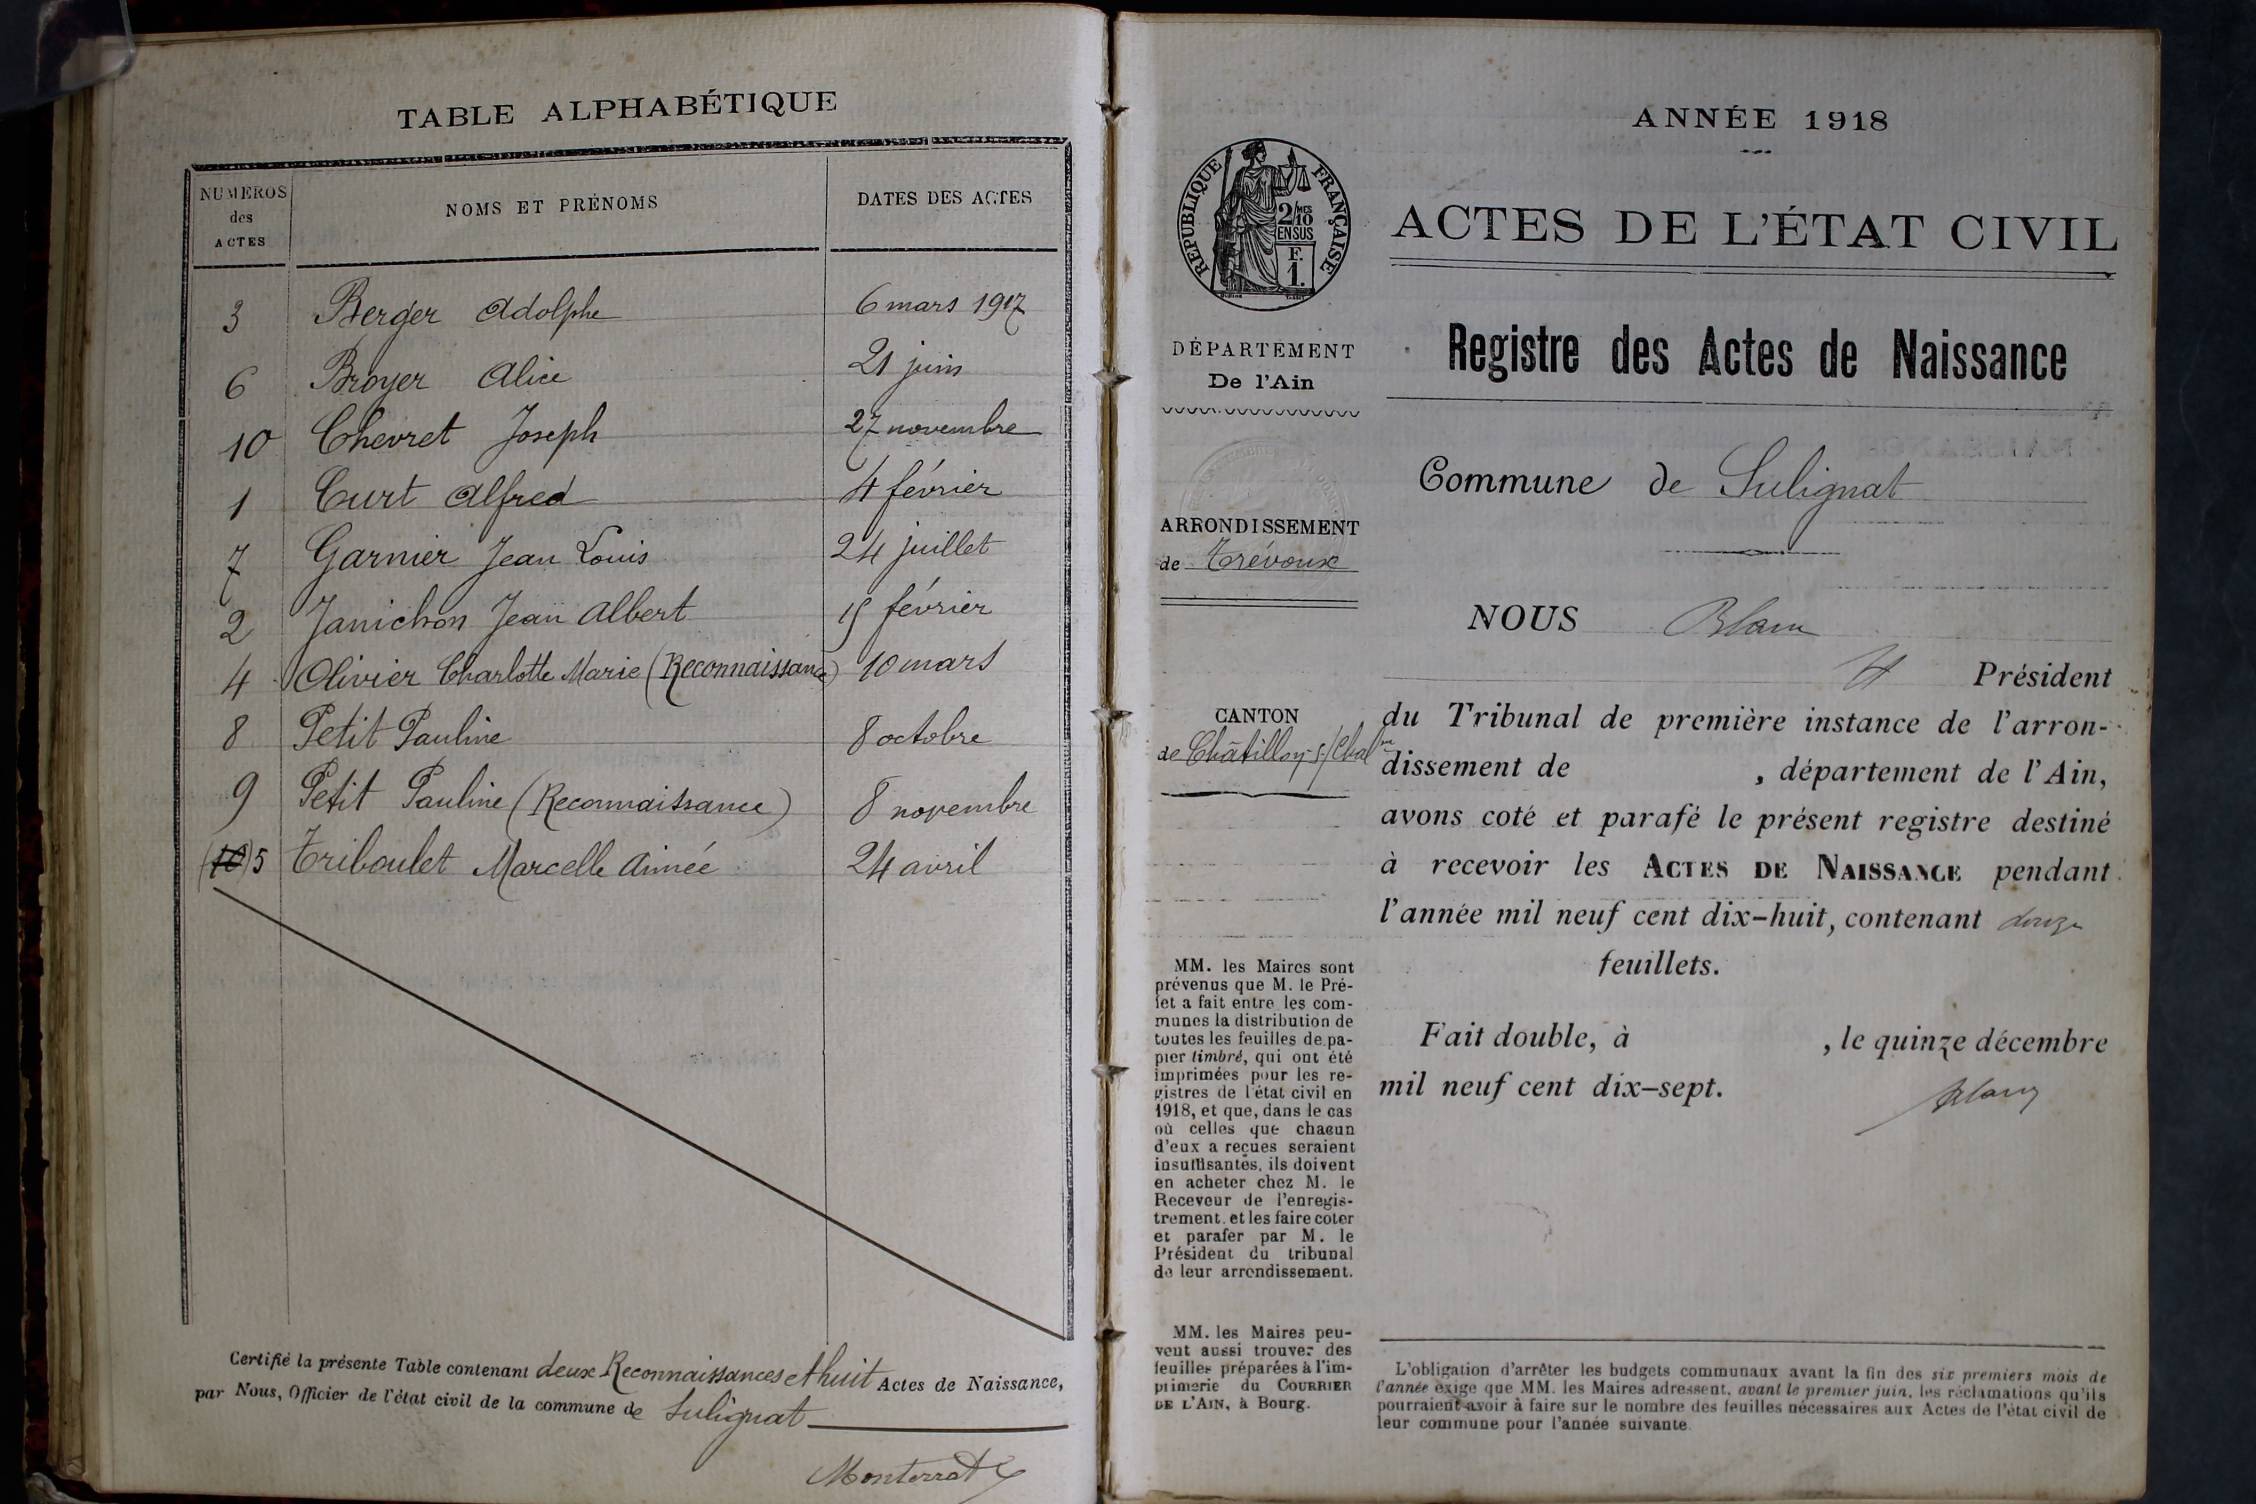 TABLE ALPHABÉTIQUE
NUMÉROS
des
ACTES
NOMS ET PRÉNOMS
DATES DES ACTES
3 Berger Adolphe 6 mars 1917
6 Broyer Alice 21 juin
10 Chevret Joseph 27 novembre
1 Curt Alfred 4 février
7 Garnier Jean Louis 24 juillet
2 Janichon Jean Albert 15 février
4 Olivier Charlotte Marie (Reconnaissance) 10 mars
8 Petit Pauline 8 octobre
9 Petit Pauline (Reconnaissance) 8 novembre
(10) 5 Triboulet Marcelle Aimée 24 avril
Certifié la présente Table contenant deux Reconnaissances et huit Actes de Naissance,
par Nous, Officier de l'état civil de la commune de Sulignat
Monterrat
ANNÉE 1918
RÉPUBLIQUE FRANÇAISE
2/MES
10
EN SUS
F.
1.
ACTES DE L'ÉTAT CIVIL
DÉPARTEMENT
De l'Ain
ARRONDISSEMENT
de Trévoux
CANTON
de Châtillon-s/Chal
MM. les Maires sont
prévenus que M. le Pré-
fet a fait entre les com-
munes la distribution de
toutes les feuilles de pa-
pier timbré, qui ont été
imprimées pour les re-
gistres de l'état civil en
1918, et que, dans le cas
où celles que chacun
d'eux a reçues seraient
insuffisantes, ils doivent
en acheter chez M. le
Receveur de l'enregis-
trement. et les faire coter
et parafer par M. le
Président du tribunal
de leur arrondissement.
MM. les Maires peu-
vent aussi trouver des
feuilles préparées à l'im-
primerie du COURRIER
DE L'AIN, à Bourg.
Registre des Actes de Naissance
Commune de Sulignat
NOUS
Président
du Tribunal de première instance de l'arron-
dissement de , département de l'Ain,
avons coté et parafé le présent registre destiné
à recevoir les ACTES DE NAISSANCE pendant
l'année mil neuf cent dix-huit, contenant douze
feuillets.
Fait double, à , le quinze décembre
mil neuf cent dix-sept.
L'obligation d'arrêter les budgets communaux avant la fin des six premiers mois de
l'année exige que MM. les Maires adressent, avant le premier juin, les réclamations qu'ils
pourraient avoir à faire sur le nombre des feuilles nécessaires aux Actes de l'état civil de
leur commune pour l'année suivante.